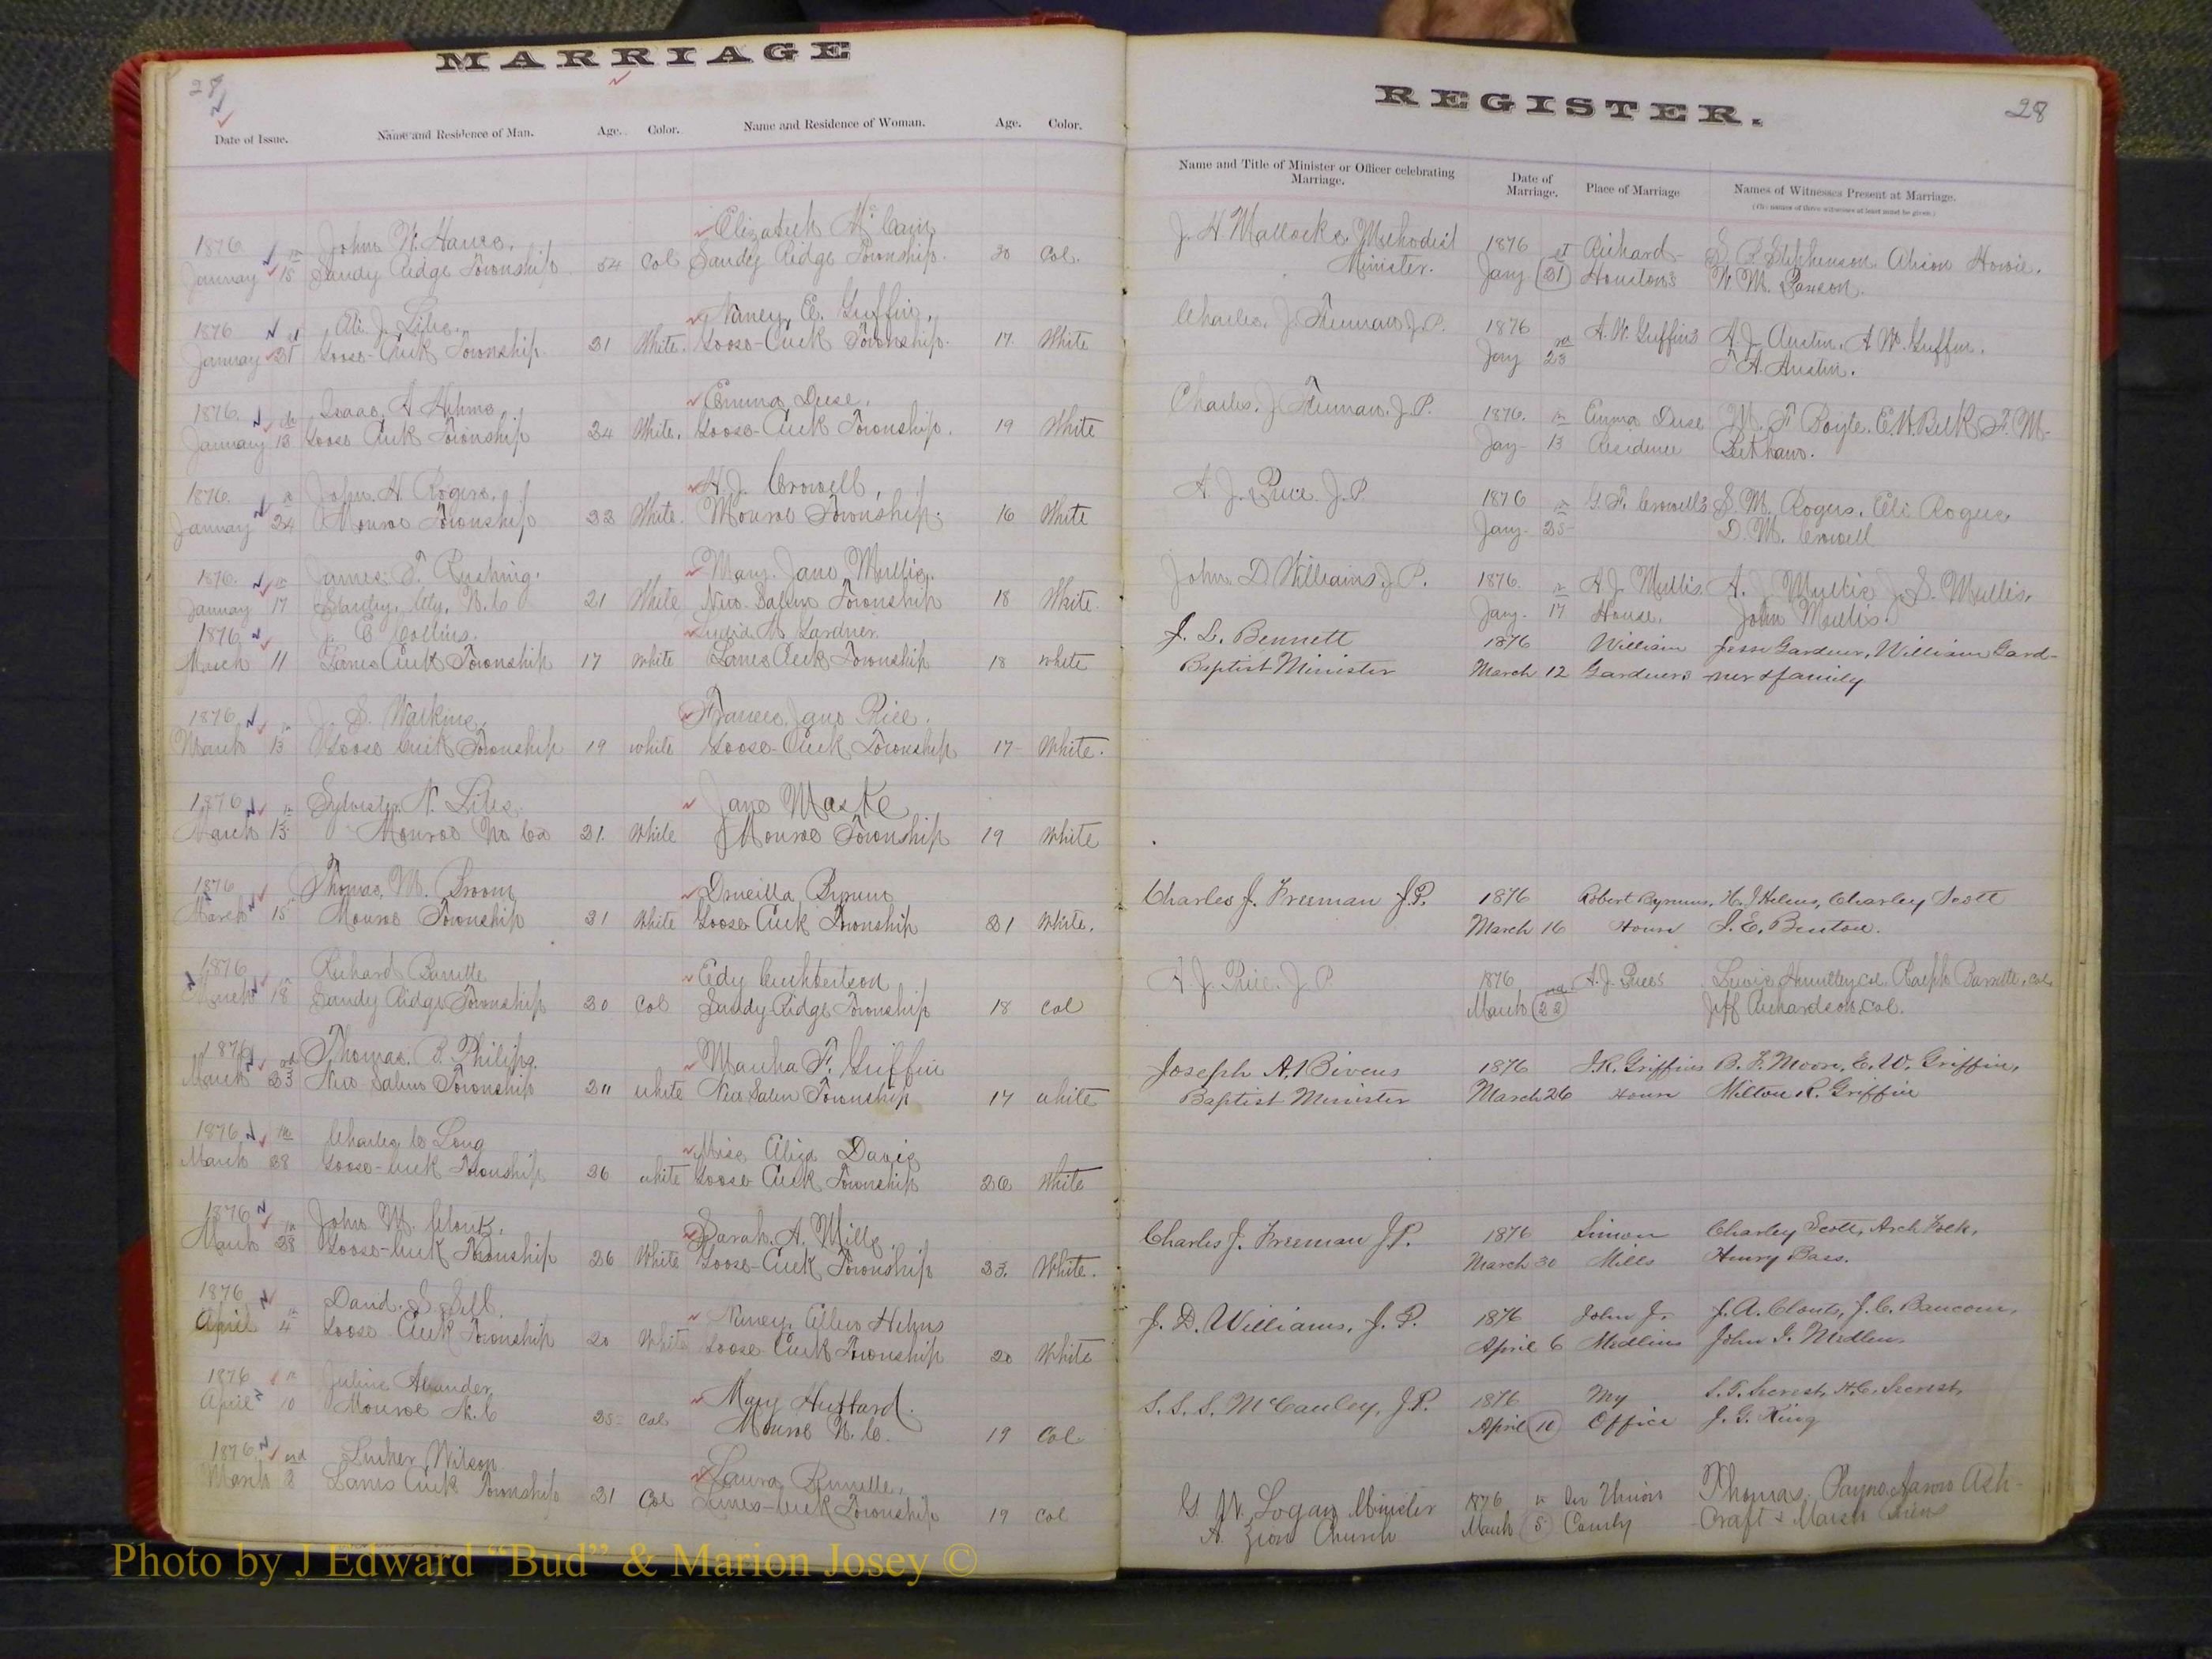 MARRIAGE
28
Date of Issue. Name and Residence of Man. Age. Color. Name and Residence of Woman. Age. Color.
1876 John W. Elizabeth McCain
January 15 Sandy Ridge Township 54 Col Sandy Ridge Township 30 Col.
1876 Eli J. Nancy E. Griffin.
January 21 Goose-Creek Township 21 White. Goose-Creek Township. 17 White
1876. Isaac A Helms Emma Duse.
January 13 Goose Creek Township 24 White. Goose-Creek Township. 19 White
1876. John H. Rogers. H. J. Crowell,
January 24 Monroe Township 22 White. Monroe Township. 16 White
1876. James T. Rushing. Mary Jane Mullis.
January 17 Stanley, Cty, N.C 21 White New Salem Township 18 White.
1876 J. C Collins. Lydia A Gardner.
March 11 Lanes Creek Township 17 White Lanes Creek Township 18 White
1876 J. S. Frances Jane Price.
March 13 Goose Creek Township 19 white Goose-Creek Township 17 White.
1876 Sylvester N. Jane
March 13 Monroe No Ca 21. White Monroe Township 19 White
1876 Thomas M. Broom Drucilla Byrum
March 15 Monroe Township 21 White Goose Creek Township 21 White.
1876 Richard Edy Cuthbertson
March 18 Sandy Ridge Township 20 Col Sandy Ridge Township 18 Col
1876 Thomas P. Philips. Martha F. Griffin
March 23 New Salem Township 20 white New Salem Township 17 white
1876 Charles C Long Miss Eliza Davis
March 28 Goose-Creek Township 26 white Goose Creek Township 26 White
1876 John M. Clontz. Sarah. A. Mills
March 28 Goose-Creek Township 26 White Goose-Creek Township 23. White.
1876 David. S Sell. Nancy Ellen Helms
April 4 Goose Creek Township 20 White Goose Creek Township 20 White
1876 Mary
April 10 Monroe N.C 25 Col Monroe N.C. 19 Col
1876 Luther Wilson Laura
March 3 Lanes Creek Township 21 Col Lanes-Creek Township 19 Col
REGISTER.
28
Name and Title of Minister or Officer celebrating Marriage. Date of Marriage. Place of Marriage Names of Witnesses Present at Marriage.
J. H Mallocke Methodist 1876 Richard S. P. Stephenson, Howie.
Minister. Jany 21 Houston's W. M.
Charles. J. Freeman J.P. 1876 A. W. Griffins A. J. Austin. A W. Griffin.
Jany 23 T A. Austin.
Charles. J. Freeman, J.P. 1876. Emma Duse M. F Doyle. E. W. Belk
Jany 13 Residence
A. J. Price. J.P 1876 G. F. Crowell's S. M. Rogers. Eli Rogers
Jany. 25 D. M. Crowell
John D Williams J.P. 1876. A J. Mullis. A. J Mullis J. S. Mullis.
Jany. 17 House. John Mullis.
J. L. Bennett 1876 William Jesse Gardner, William Gard-
Baptist Minister March 12 Gardners ner & family
Charles J. Freeman J.P. 1876 Robert Byrums, H. J. Helms, Charley Scott
March 16 House J. E. Benton.
A J. Price. J. P 1876 A. J. Prices Lewis Huntley col. Ralph col
March 22 Jeff Richardson, Col.
Joseph A. Bivens 1876 J. R. Griffins B. F. Moore, E. W. Griffin,
Baptist Minister March 26 House Milton R. Griffin
Charles J. Freeman J.P. 1876 Simon Charley Scott, Arch Polk,
March 30 Mills Henry Bass.
J. D. Williams, J. P. 1876 John J. J. A. Clontz, J. C. Baucom,
April 6 Medlins John J. Medlin.
S. S. S. McCauley, J.P. 1876 My S. T. Secrest, H. C. Secrest,
April 10 Office J. G. King
G. W. Logan Minister 1876 in Union Thomas Payne, Ash-
A. Zion Church March 5 County craft &
Photo by J Edward “Bud” & Marion Josey ©